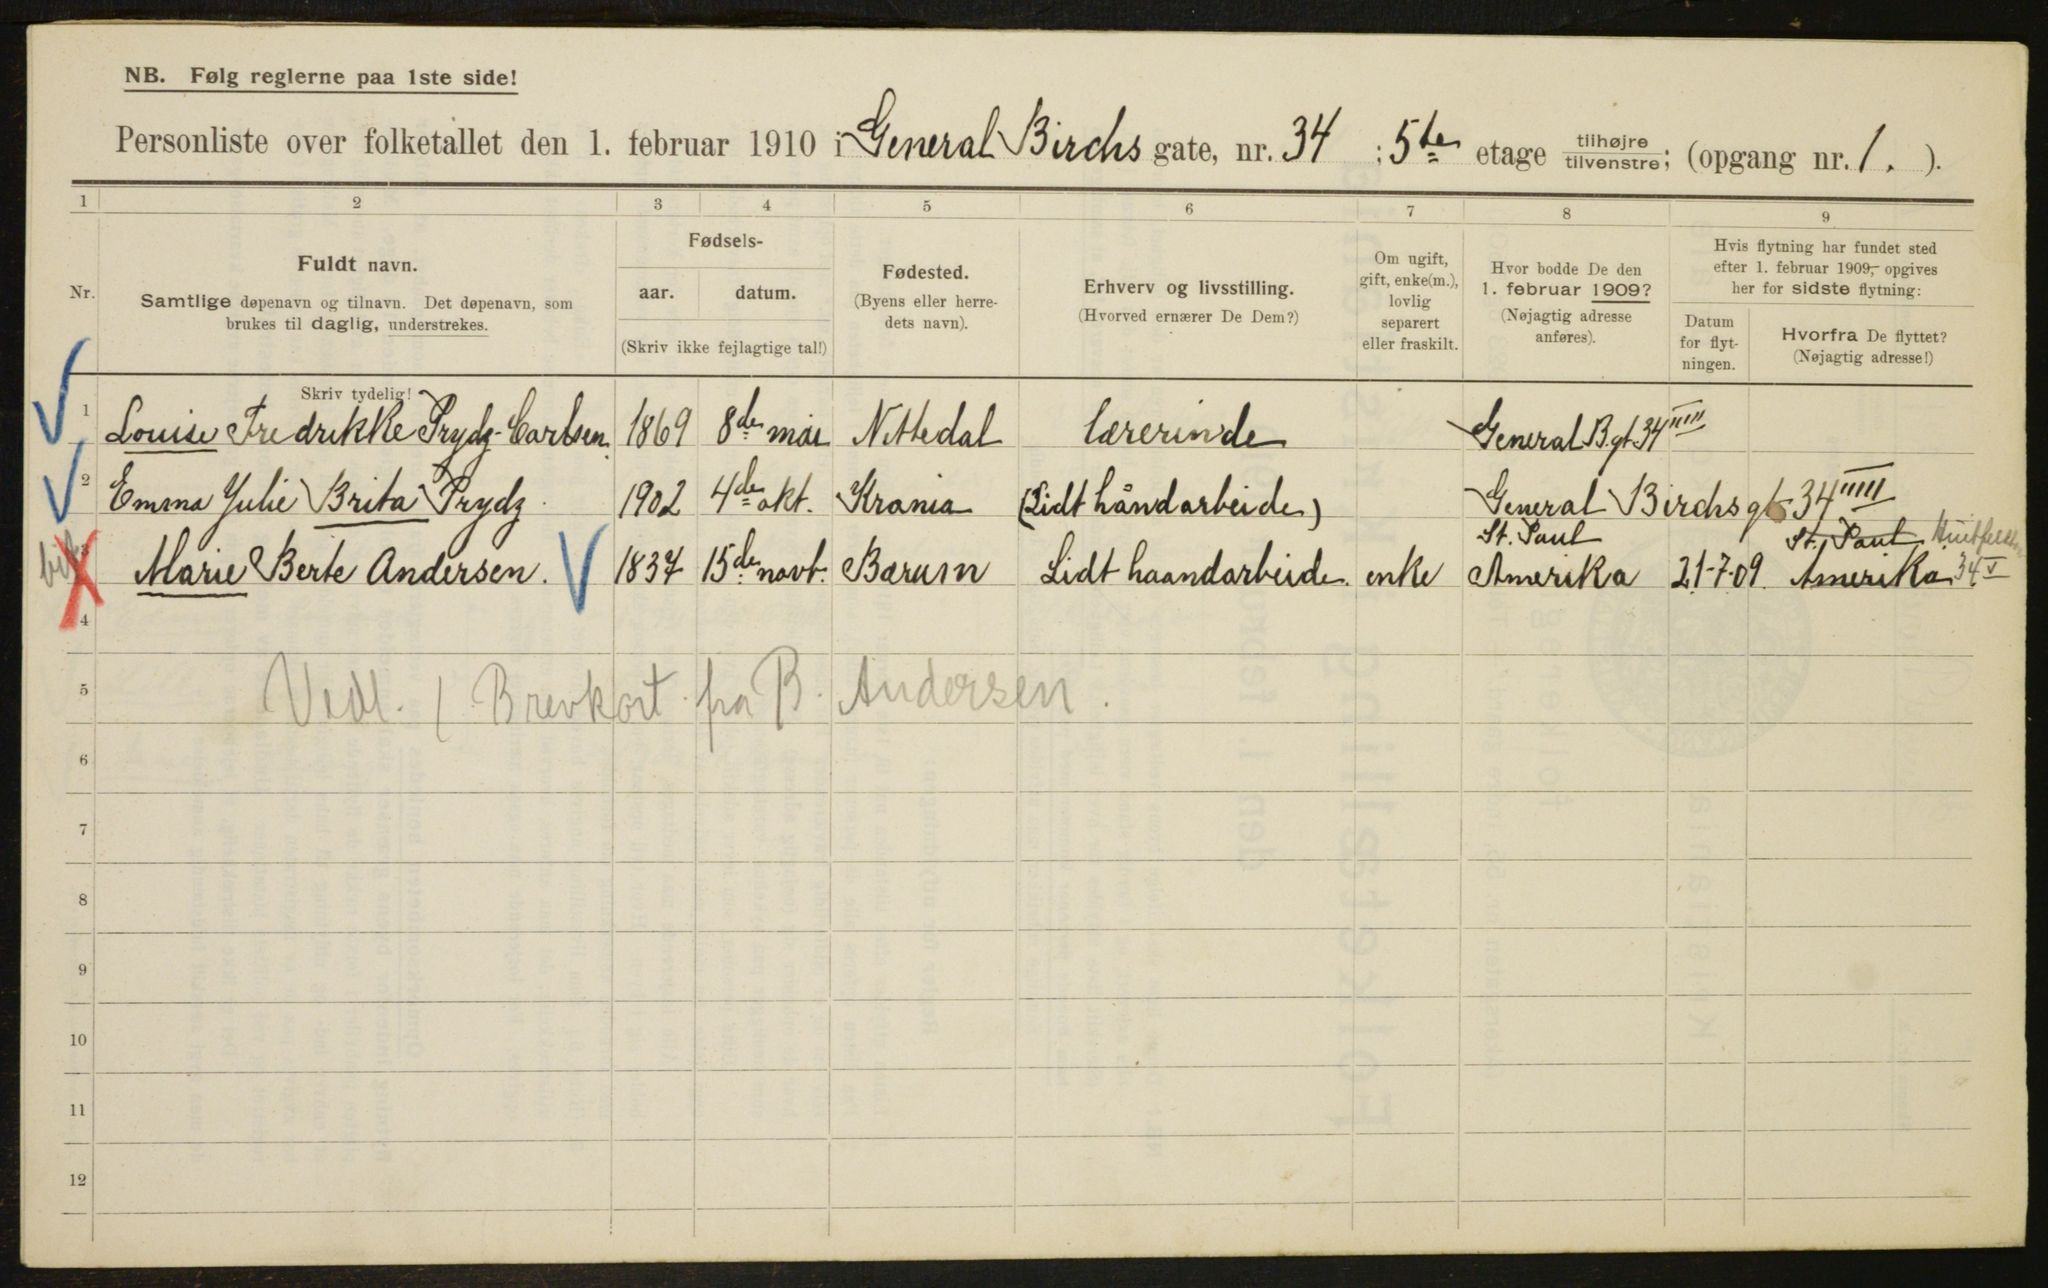 NB. Følg reglerne paa 1ste side!
Personliste over folketallet den 1. februar 1910 i General Birchs gate, nr. 34 : 5te etage tilhøjre tilvenstre; (opgang nr. 1. ).
1 2 3 4 5 6 7 8 9
Nr.
Fuldt navn.
Samtlige døpenavn og tilnavn. Det døpenavn, som
brukes til daglig, understrekes.
Fødsels-
aar. datum.
(Skriv ikke fejlagtige tal!)
Fødested.
(Byens eller herre-
dets navn).
Erhverv og livsstilling.
(Hvorved ernærer De Dem?)
Om ugift,
gift, enke(m.),
lovlig
separert
eller fraskilt.
Hvor bodde De den
1. februar 1909?
(Nøjagtig adresse
anføres).
Hvis flytning har fundet sted
efter 1. februar 1909, opgives
her for sidste flytning:
Datum
for flyt-
ningen.
Hvorfra De flyttet?
(Nøjagtig adresse!)
Skriv tydelig!
1 Louise Fredrikke Prydz-Carlsen. 1869 8de mai Nittedal lærerinde General B.gt. 34 IIIII
2 Emma Julie Brita Prydz. 1902 4de okt. Krania (Lidt håndarbeide) General Birchs gt 34 IIIII
St. Paul St. Paul
3 Marie Berte Andersen. 1837 15de novt. Bærum Lidt haandarbeide. enke Amerika 21-7-09. Amerika. 34 V
4
5 Vedl. 1 Brevkort fra B. Andersen.
6
7
8
9
10
11
12